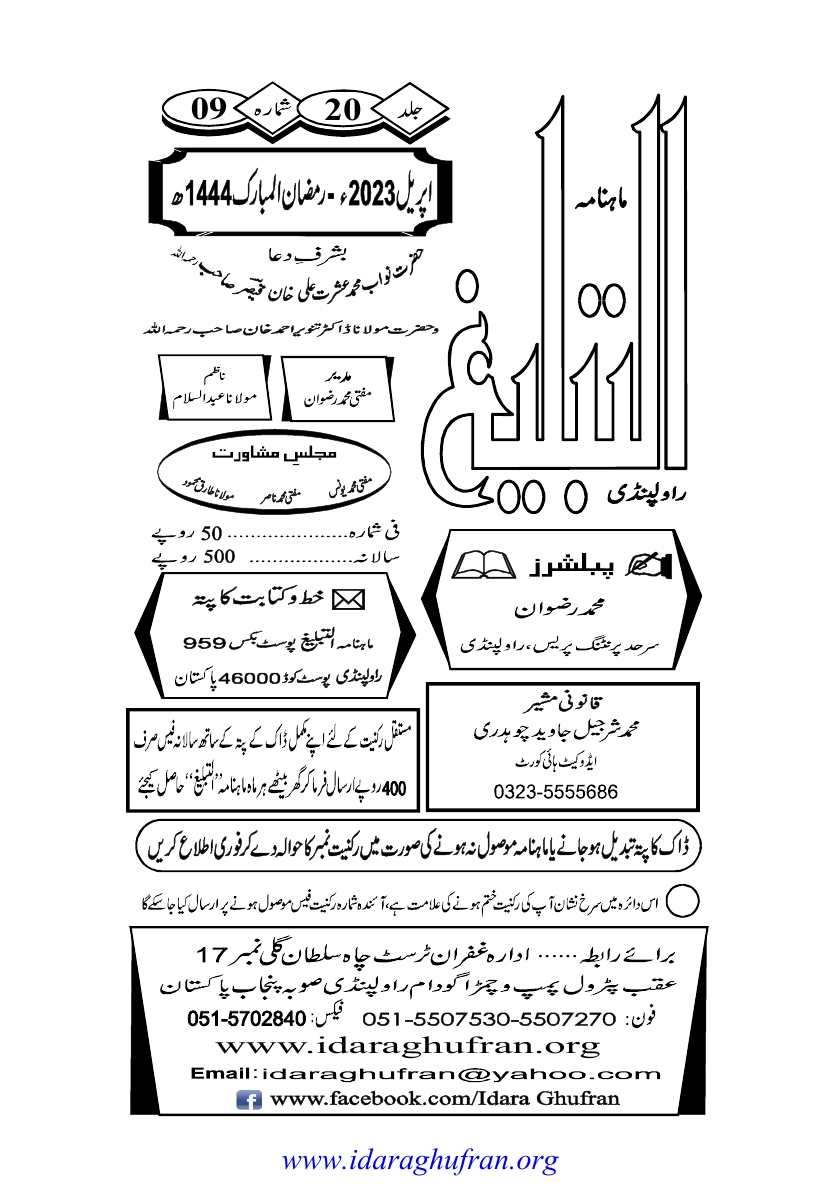 جلد 20 شمارہ 09
اپریل 2023ء - رمضان المبارک 1444ھ
ماہنامہ
التبلیغ
راولپنڈی
بشرفِ دعا
حضرت نواب محمد عشرت علی خان قیصر صاحب رحمہ اللہ
وحضرت مولانا ڈاکٹر تنویر احمد خان صاحب رحمہ اللہ
مدیر
مفتی محمد رضوان
ناظم
مولانا عبدالسلام
مجلسِ مشاورت
مفتی محمد یونس مفتی محمد ناصر مولانا طارق محمود
فی شمارہ..................... 50 روپے
سالانہ.................. 500 روپے
پبلشرز
محمد رضوان
سرحد پرنٹنگ پریس، راولپنڈی
خط و کتابت کا پتہ
ماہنامہ التبلیغ پوسٹ بکس 959
راولپنڈی پوسٹ کوڈ 46000 پاکستان
قانونی مشیر
محمد شرجیل جاوید چوہدری
ایڈوکیٹ ہائی کورٹ
0323-5555686
مستقل رکنیت کے لئے اپنے مکمل ڈاک کے پتہ کے ساتھ سالانہ فیس صرف
400 روپے ارسال فرما کر گھر بیٹھے ہر ماہ ماہنامہ "التبلیغ" حاصل کیجئے
ڈاک کا پتہ تبدیل ہو جانے یا ماہنامہ موصول نہ ہونے کی صورت میں رکنیت نمبر کا حوالہ دے کر فوری اطلاع کریں
اس دائرہ میں سرخ نشان آپ کی رکنیت ختم ہونے کی علامت ہے، آئندہ شمارہ رکنیت فیس موصول ہونے پر ارسال کیا جا سکے گا
برائے رابطہ ...... ادارہ غفران ٹرسٹ چاہ سلطان گلی نمبر 17
عقب پٹرول پمپ و چمڑا گودام راولپنڈی صوبہ پنجاب پاکستان
فون: 051-5507530-5507270 فیکس: 051-5702840
www.idaraghufran.org
Email:idaraghufran@yahoo.com
www.facebook.com/Idara Ghufran
www.idaraghufran.org